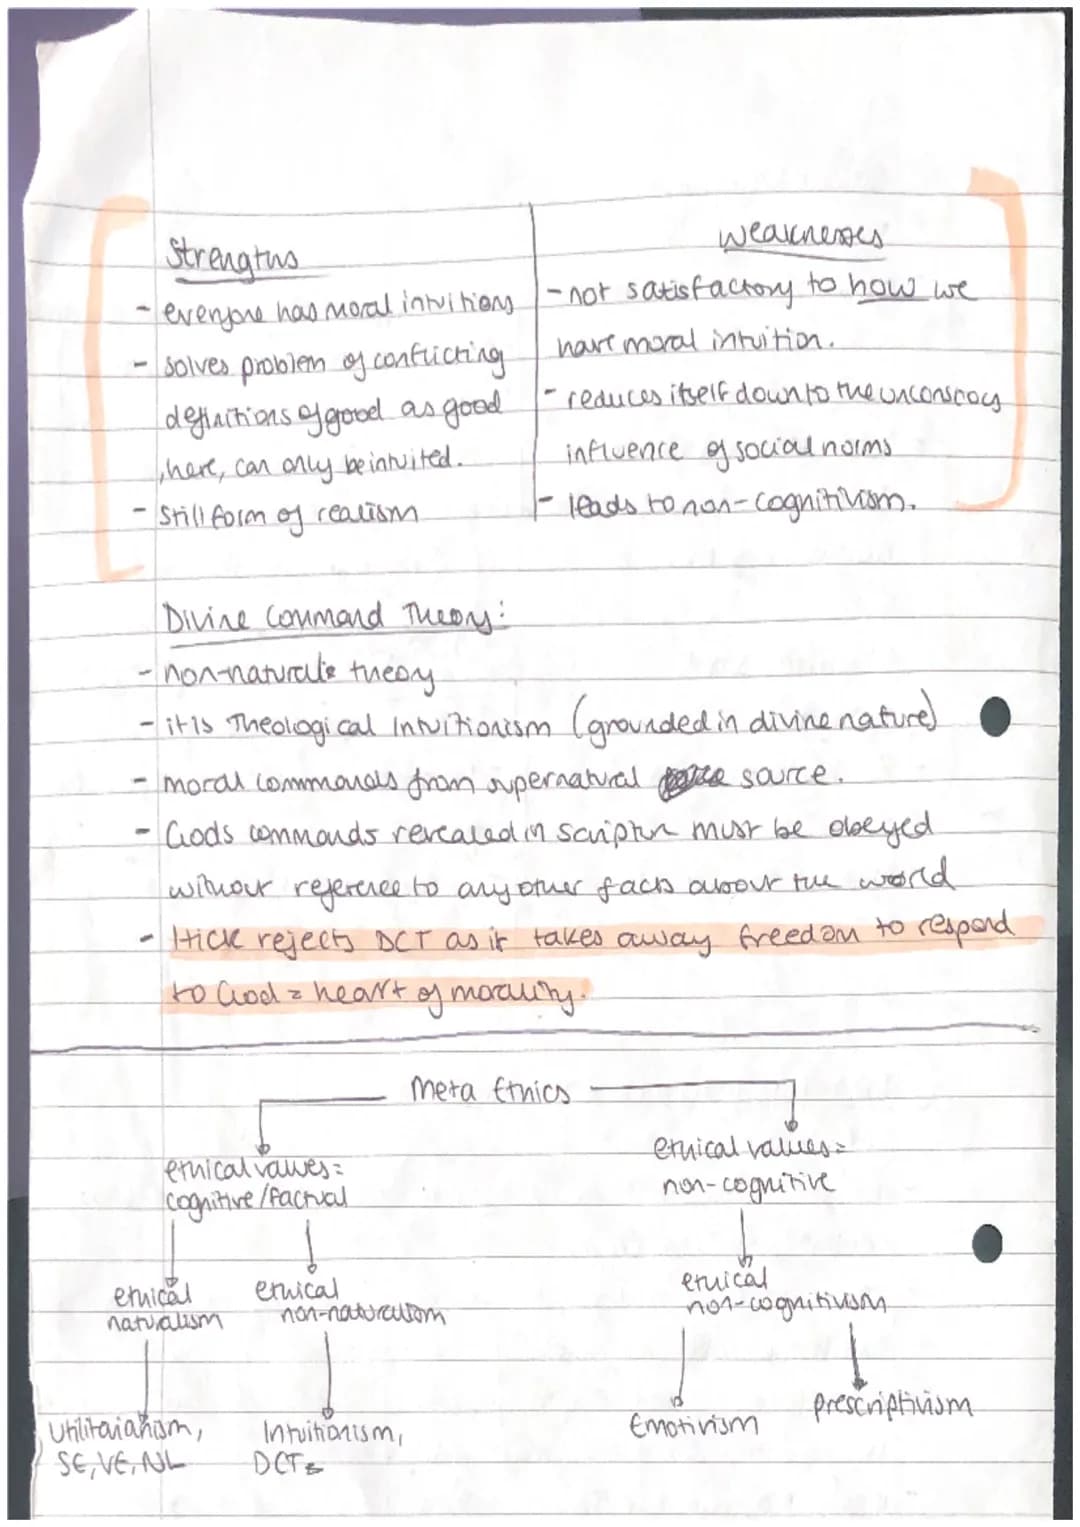 Strengths
- everyone has moral intuitions
- solves problem of conflicting
definitions of good as good
here, can only be intuited.
- still form of realism
weaknesses
- not satisfactory to how we
have moral intuition.
- reduces itself down to the unconscous
influence of social norms
- leads to non-cognitivism.
Divine Command Theory:
- non-naturalis theory
- it is Theological Intuitionism (grounded in divine nature)
- moral commands from supernatural source.
- Gods commands revealed in scriptur must be obeyed
without reference to any other facts about the world
- Hick rejects DCT as it takes away freedom to respond
to God = heart of morality.
Meta Ethics
ethical values =
cognitive/factual
ethical values =
non-cognitive
ethical
naturalism
ethical
non-naturalism
ethical
non-cognitivism
Utilitarianism,
SE, VE, NL
Intuitionism,
DCT
Emotivism
prescriptivism